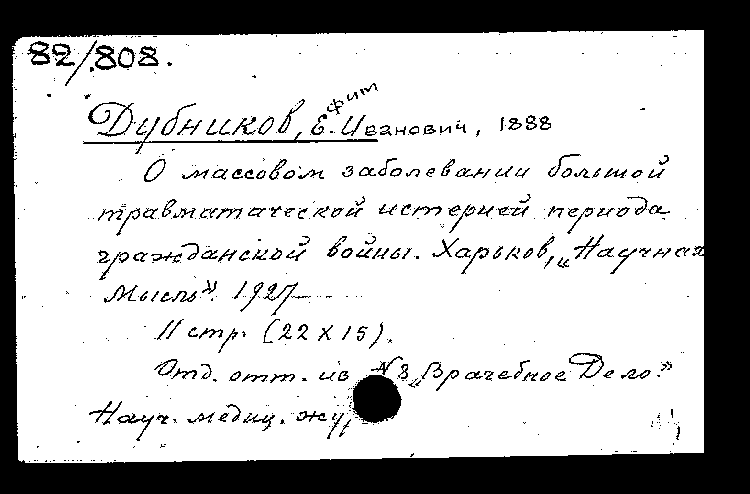 82/808.
Дубников, Ефим Иванович, 1888
О массовом заболевании большой
травматической истерией периода
гражданской войны. Харьков, „Научная
Мысль". 1927
11 стр. (22 x 15).
Отд. отт. из № 8 „Врачебное Дело."
Науч. медиц.